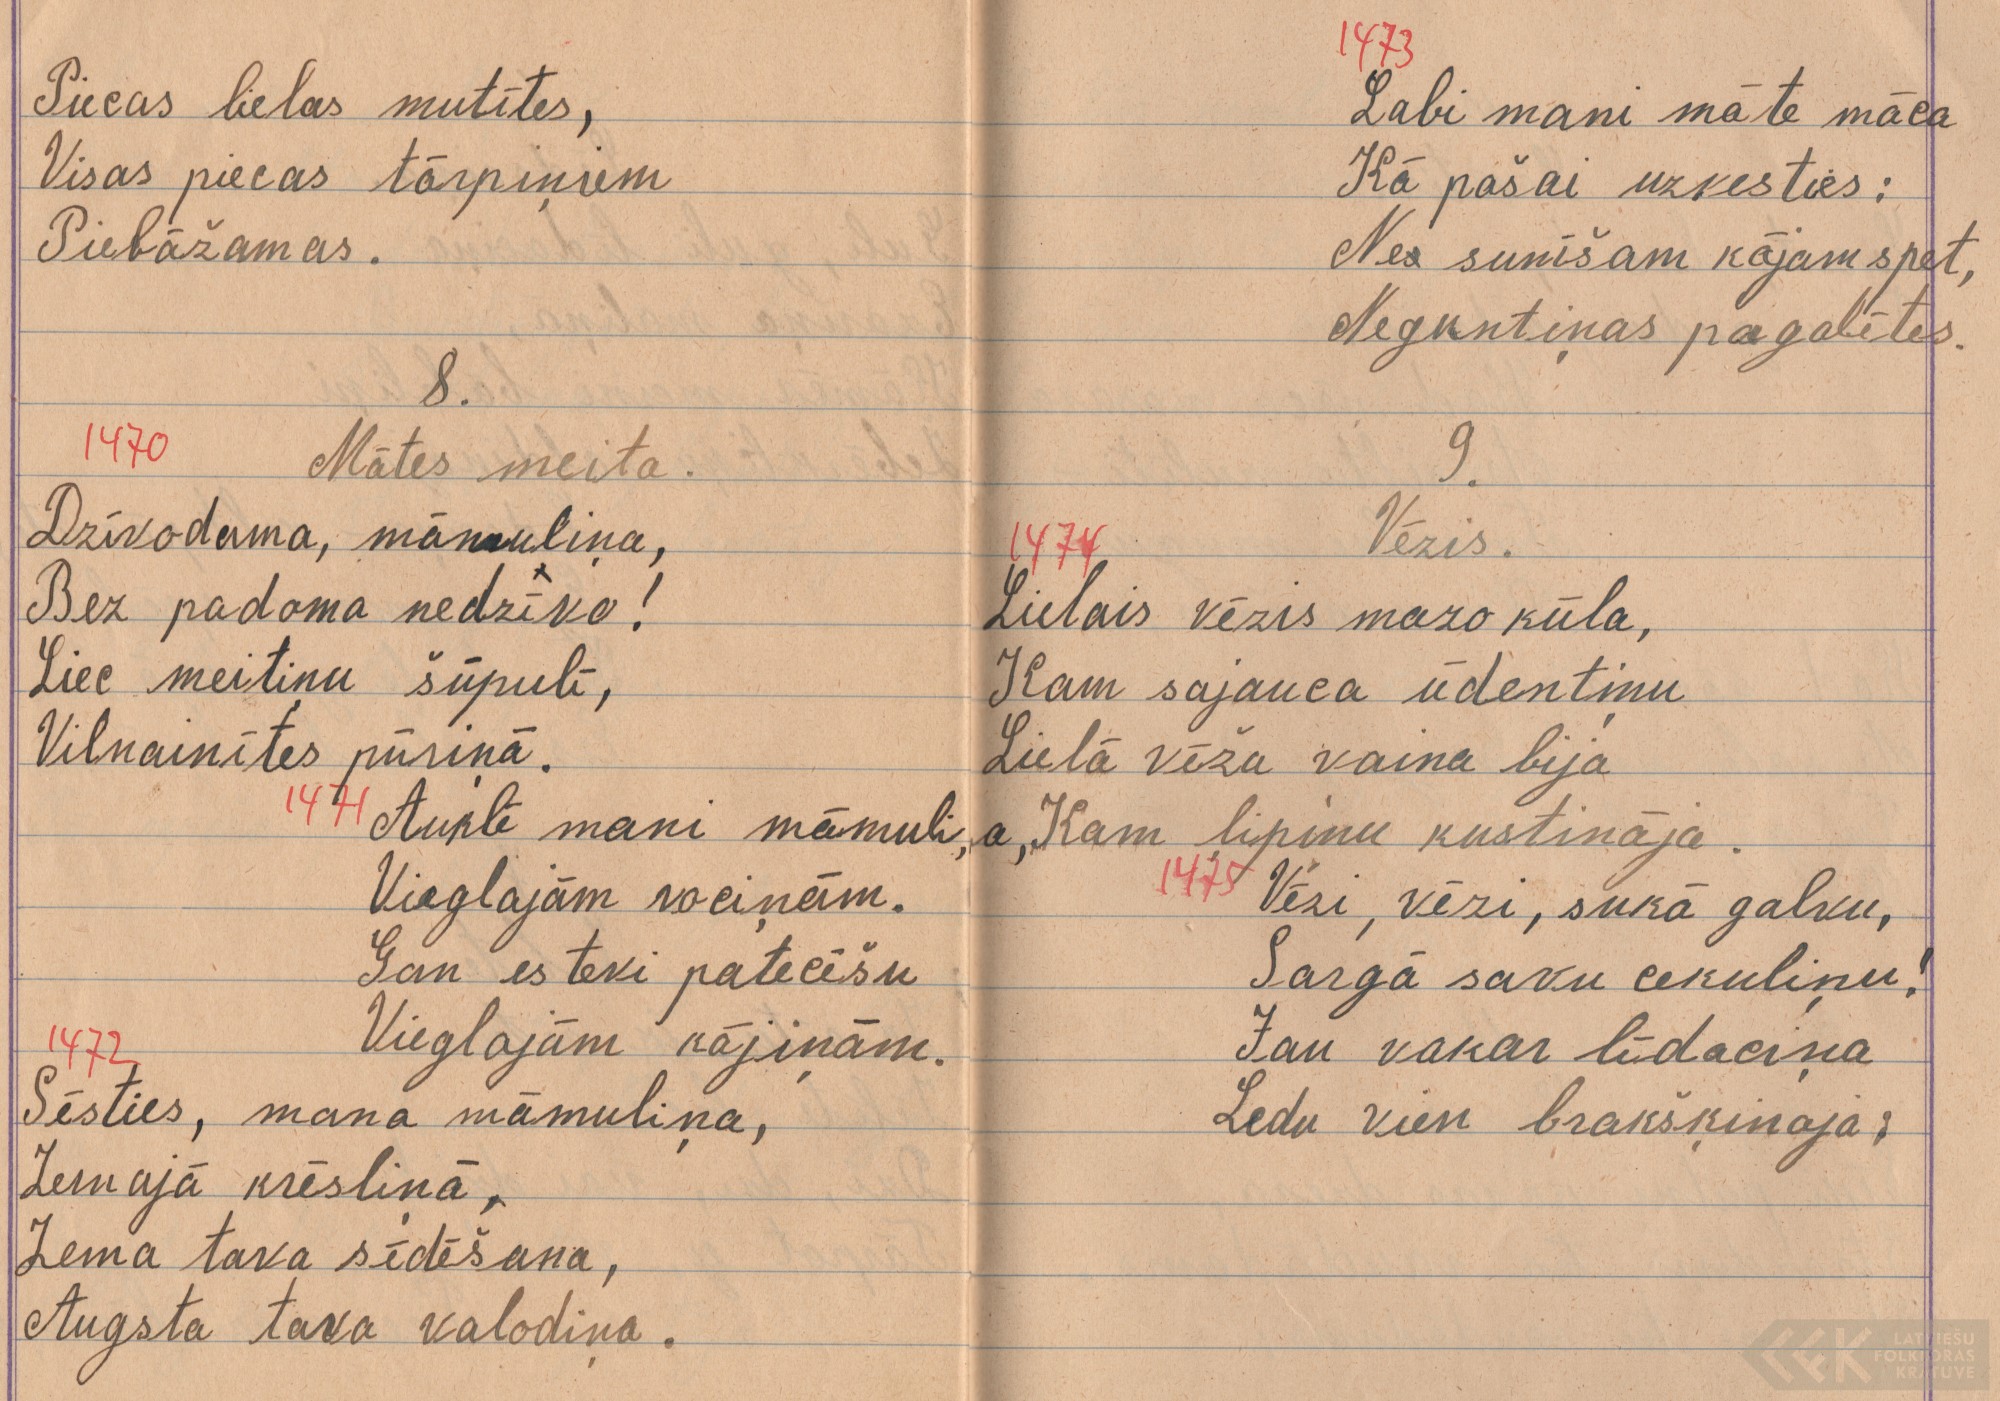 Piecas lielas mutītes,
Visas piecas tārpiņiem
Piebāžamas.
8.
1470
Mātes meita.
Dzīvodama, māmuliņa,
Bez padoma nedzīvo!
Liec meitiņu šūpulī,
Vilnainītes pūriņā.
1471
Auklē mani māmuliņa,
Vieglajām rociņām.
Gan es tevi patecēšu
Vieglajām kājiņām.
1472
Sēsties, mana māmuliņa,
Zemajā krēsliņā,
Zema tava sēdēšana,
Augsta tava valodiņa.
1473
Labi mani māte māca
Kā pašai uzvesties:
Ne sunīšam kājam spet,
Neguntiņas pagalītes.
9.
Vēzis.
1474
Lielais vēzis mazo kūla,
Kam sajauca ūdentiņu
Lielā vēža vaina bija
Kam ļipiņu kustināja.
1475
Vēzi, vēzi, sukā galvu,
Sargā savu cekuliņu!
Jau vakar līdaciņa
Ledu vien brakšķinaja:
LATVIEŠU
FOLKLORAS
KRĀTUVE